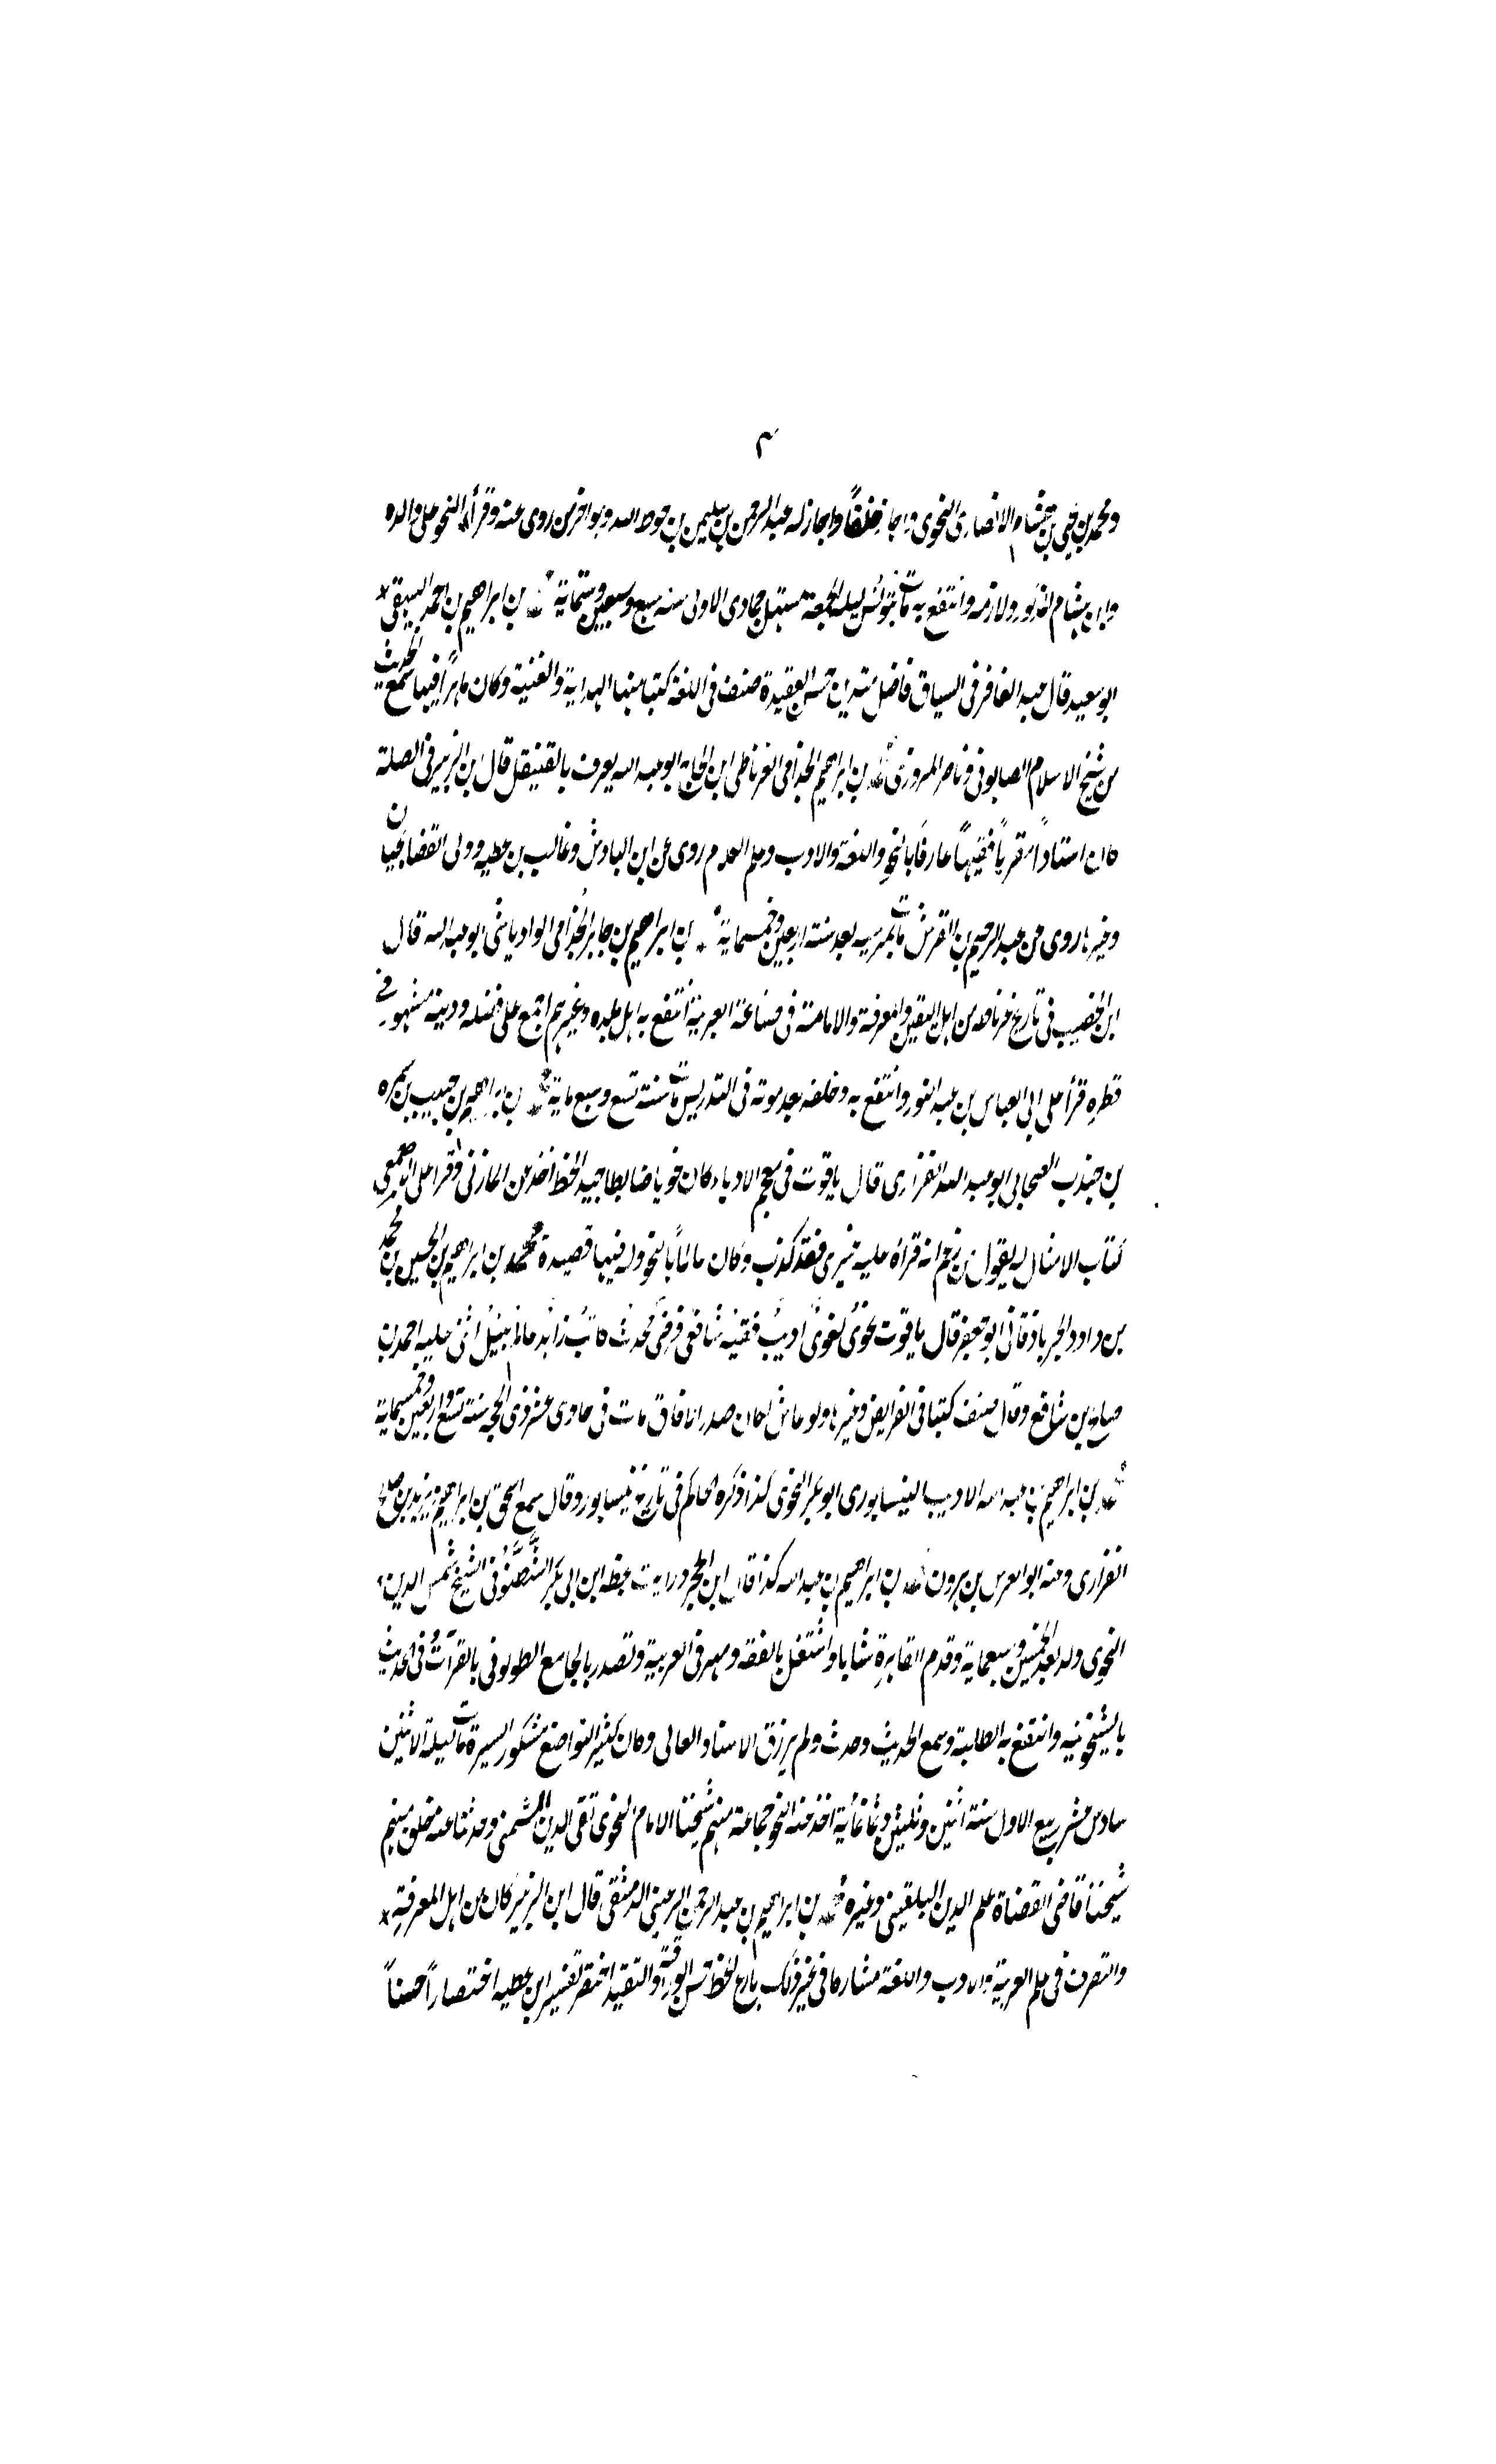 ٣
ومحمد بن يحيى بن هشام الانصارى النحوى واجاز خلقًا واجاز له عبد الرحمن بن سليمن بن حوط الله وهو اخر من روى عنه وقرأ النحو على والده
وابن هشام المذكور ولازمه وانتفع به مات بتونس ليلة الجمعة مستهل جمادى الاولى سنة سبع وسبعين وستماية محمد بن ابراهيم بن احمد البيهقى
ابو سعيد قال عبد الغافر فى السياق فاضل متدين حسن العقيدة صنف فى اللغة كتبا منها الهداية والغنية وكان ماهراً فيها سمع الحديث
من شيخ الاسلام الصابونى وناصر المروزى محمد بن ابراهيم الجذامى الغرناطى ابن الحاج ابو عبد الله يعرف بالقنيقل قال ابن الزبير فى الصلة
كان استاذاً مقرياً فقيهاً عارفاً بالنحو واللغة والادب وعلم الكلام روى عن ابن الباذش وغالب بن عطيه وولى القضا بجيان
وغيرها روى عن عبد الرحيم بن الفرس مات بمرسيه بعد سنة اربعين وخمسماية بن ابراهيم بن جابر الجذامى الوادياشى ابو عبد الله قال
ابن الخطيب فى تاريخ غرناطه من اهل اليقين والمعرفة والامامة فى صناعة العربية انتفع به اهل بلده وغيرهم اجمع على فضله ودينه مشهور فى
قطره قرأ على ابى العباس بن عبد النور وانتفع به وخلفه بعد موته فى التدريس مات سنة تسع وسبع ماية محمد بن ابراهيم بن حبيب بن سمرة
بن جندب الصحابى ابو عبد الله الفزارى قال ياقوت فى معجم الادباء كان نحويا ضابطا جيد الخط اخذ عن المازنى وقرا على الاصمعى
كتاب الامثال له يقول من زعم انه قراه عليه غيرى فقد كذب وكان عالماً بالنحو وله فيها قصيدة محمد بن ابراهيم بن الحسين بن محمد
بن داود الجرباذقانى ابو جعفر قال ياقوت نحوىٌ لغوىٌ اديبٌ فقيه شافعى فرضىٌ محدث كاتبٌ زاهد عالم نبيل اثنى عليه احمد بن
صالح بن شافع وقال صنف كتبا فى الفرايض وغيرها ولو عاش لكان صدر الافاق مات فى حادى عشر ذى الحجه سنة تسع واربعين وخمسماية
محمد بن ابراهيم بن عبد الله الاديب النيسابورى ابو بكر النحوى كذا ذكره الحاكم فى تاريخ نيسابور وقال سمع اسحق بن ابراهيم ويزيد بن صالح
الفزارى ومنه ابو العرس بن هرون محمد بن ابراهيم بن عبد الله كذا قال ابن الحجر ورايت بخطه ابن ابى بكر الشَّطَّنوفى الشيخ شمس الدين
النحوى ولد بعد الخمسين وسبعماية وقدم القاهرة شابا واشتغل بالفقه ومهر فى العربية وتصدر بالجامع الطولونى بالقرآت وفى الحديث
بالشيخونيه وانتفع به الطلبة وسمع الحديث وحدث ولم يرزق الاسناد العالى وكان كثير التواضع مشكور السيرة مات ليلة الاثنين
سادس عشر ربيع الاول سنة اثنين وثلثين وثمانمأية اخذ عنه النحو جماعة منهم شيخنا الامام النحوى تقى الدين الشمنى وحدثنا عنه خلق منهم
شيخنا قاضى القضاة علم الدين البلقينى وغيره محمد بن ابراهيم بن عبد الرحمن الرعينى الدمشقى قال ابن الزبير كان من اهل المعرفة
والتصرف فى علم العربية والادب واللغة مشاركا فى غير ذلك بارع الخط حسن الوراقة والتقيد اختصر تفسير ابن عطيه اختصاراً حسناً